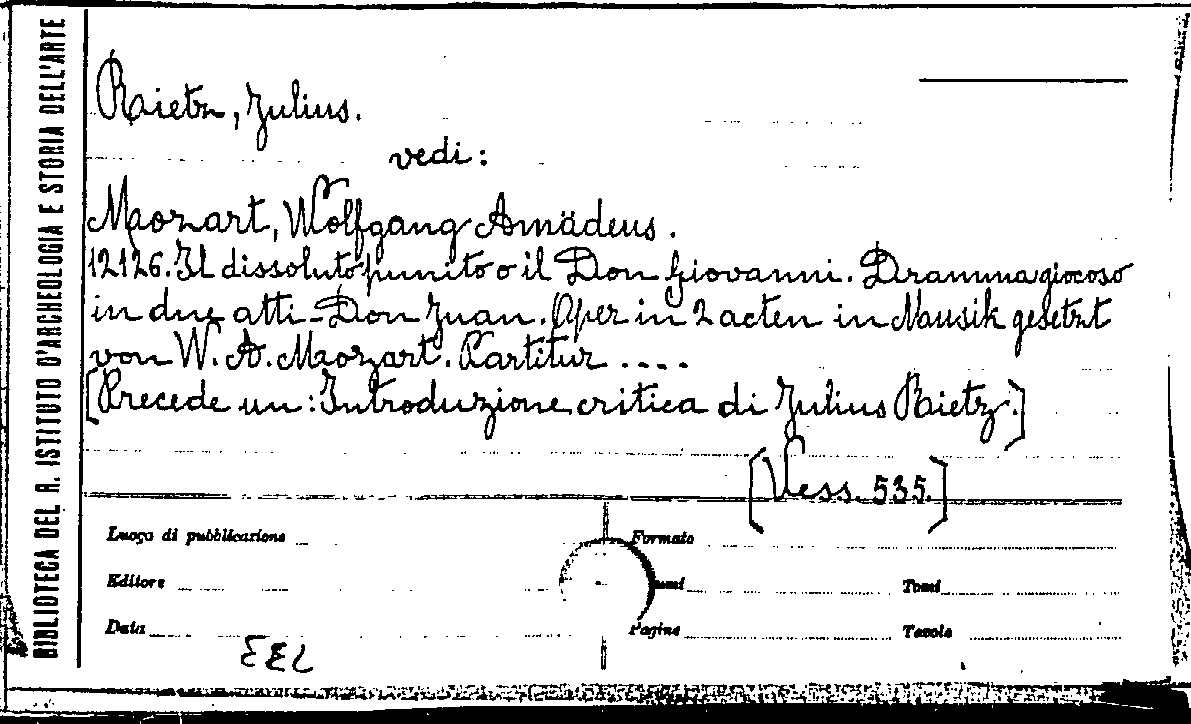 BIBLIOTECA DEL R. ISTITUTO D'ARCHEOLOGIA E STORIA DELL'ARTE
Rietz, Julius.
vedi:
Maozart, Wolfgang Amädeus.
12126. Il dissoluto punito o il Don Giovanni. Dramma giocoso
in due atti - Don Juan. Oper in 2 acten in Mausik gesetzt
von W. A. Maozart. Partitur ....
[Precede un: Introduzione critica di Julius Rietz.]
[Vess. 535.]
Luogo di pubblicazione
Formato
Editore
umi
Tomi
Data
Pagine
Tavole